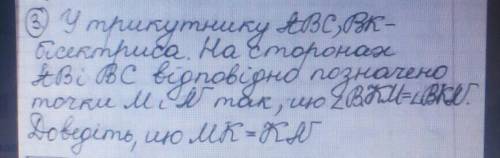 ③ У трикутнику ABC, BK-
бісектриса. На сторонах
AB і BC відповідно позначено
точки M і N так, що ∠BKM=∠BKN.
Доведіть, що MK=KN